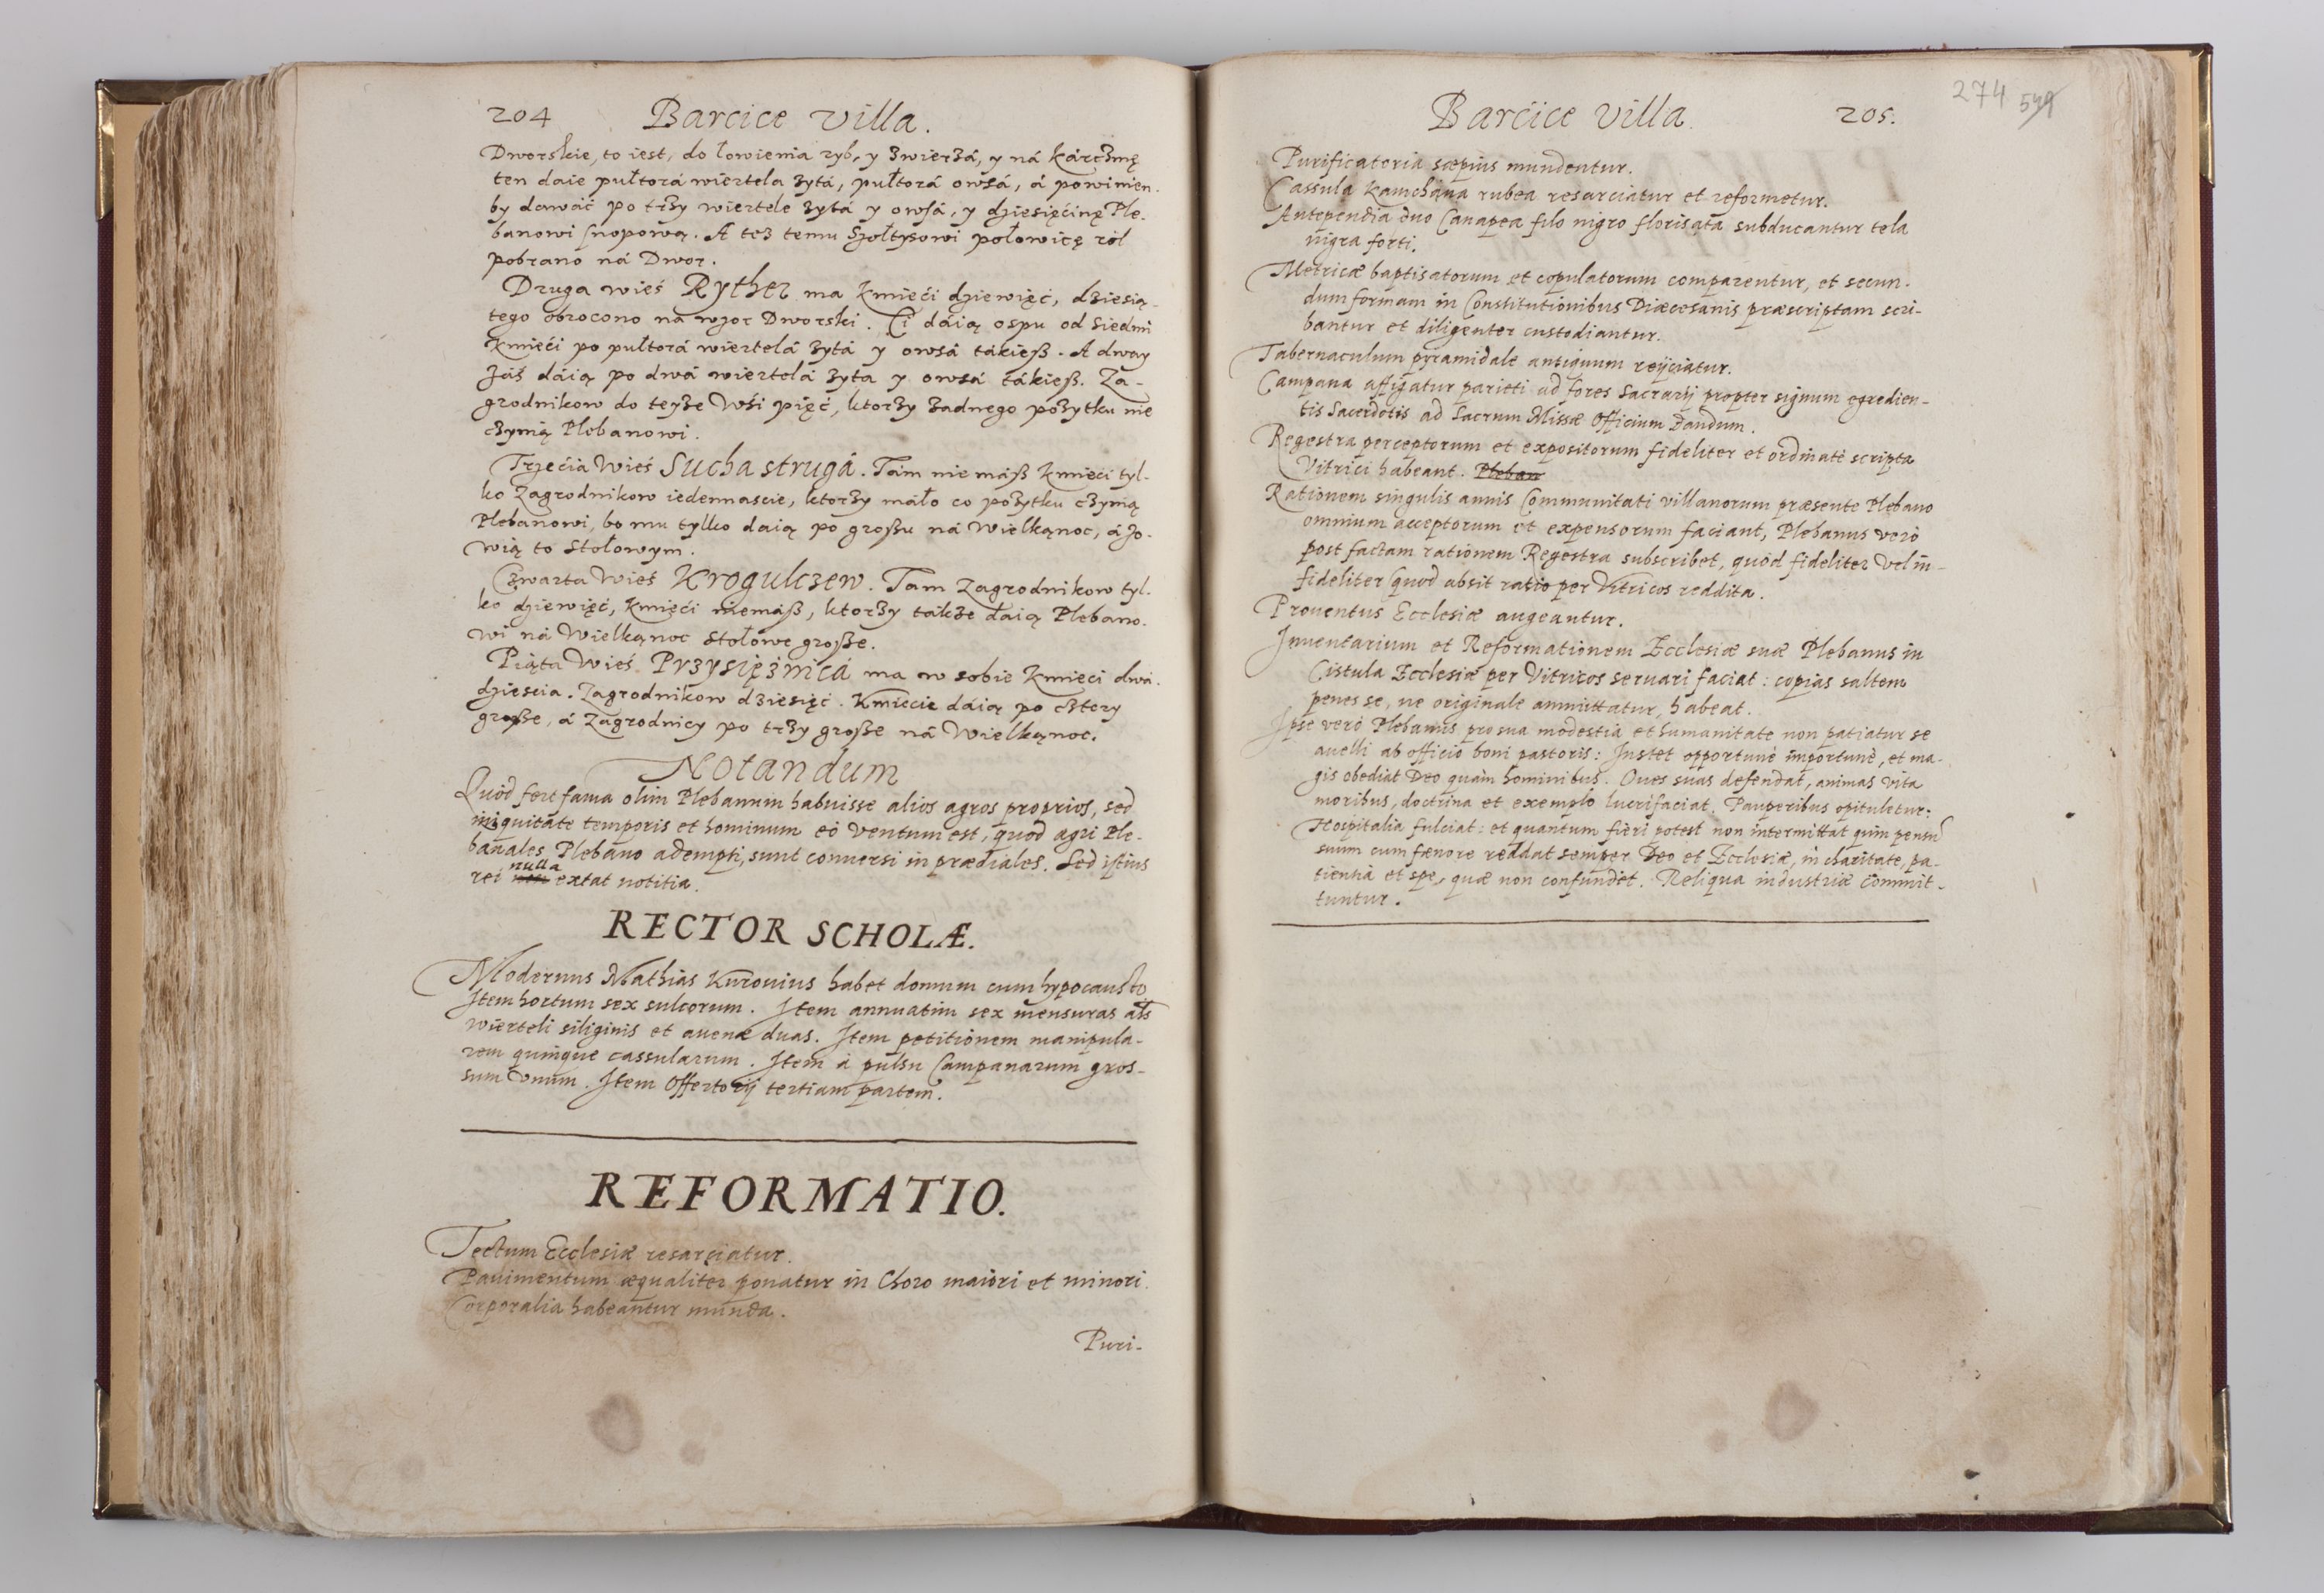 204 Barcice Villa.
Dworskie, to iest, do łowienia ryb, y zwierzá, y ná kárczmę
ten daie pułtorá wiertela zytá, pułtorá owsá, á powinien
by dawáć po trzy wiertele zytá y owsá, y dziesięćinę Ple-
banowi snopową. A tez temu Szołtysowi połowicę ról
pobrano ná Dwor.
Druga wieś Ryther ma Kmieći dziewięć, dziesią-
tego obrocono ná wzor Dworski. Ci dáią ospu od siedmi
Kmieći po pułtorá wiertelá zytá y owsá tákiesz. A dway
záś dáią po dwá wiertelá zyta y owsá tákiesz. Za-
grodnikow do teyze Wśi pięć, ktorzy zadnego pozytku nie
czynią Plebanowi.
Trzećia Wieś Sucha strugá. Tám nie mász Kmieci tyl-
ko Zagrodnikow iedennascie, ktorzy máło co pozytku czynią
Plebanowi, bo mu tylko daią po groszu ná Wielkąnoc, á zo-
wią to Stołowym.
Czwarta Wieś Krogulczew. Tam Zagrodnikow tyl-
ko dziewięć, Kmięći niemász, ktorzy tákze daią Plebano-
wi ná Wielkąnoc Stołowe grosze.
Piąta Wieś Przysięznicá ma w sobie Kmieci dwá-
dziescia. Zagrodnikow dziesięć. Kmiecie dáią po cztery
grosze, á Zagrodnicy po trzy grosze ná Wielkąnoc.
Notandum
Quod fert fama olim Plebanum habuisse alios agros proprios, sed
iniquitate temporis et hominum eò ventum est, quod agri Ple-
banales Plebano adempti, sunt conversi in prædiales. Sed istius
rei nulla extat notitia.
RECTOR SCHOLÆ.
Modernus Mathias Kurovius habet domum cum hypocausto
Item hortum sex sulcorum. Item annuatim sex mensuras als
wierteli siliginis et auenæ duas. Item petitionem manipula-
rem quinque cassularum. Item à pulsu Campanarum gros-
sum Vnum. Item Offertorij tertiam partem.
REFORMATIO.
Tectum Ecclesiæ resarciatur.
Pauimentum æqualiter ponatur in Choro maiori et minori.
Corporalia habeantur munda.
Puri-
Barcice Villa 205.
274 549
Purificatoria sæpius mundentur.
Cassula Kamchana rubea resarciatur et reformetur.
Antependia duo Canapea filo nigro florisata subducantur tela
nigra forti.
Metricæ baptisatorum et copulatorum comparentur, et secun-
dum formam in Constitutionibus Diæcesanis præscriptam scri-
bantur et diligenter custodiantur.
Tabernaculum pyramidale antiquum reijciatur.
Campana affigatur parieti ad fores Sacrarij propter signum egredien-
tis Sacerdotis ad Sacrum Missæ Officium dandum.
Regestra perceptorum et expositorum fideliter et ordinatè scripta
Vitrici habeant. Pleban
Rationem singulis annis Communitati villanorum præsente Plebano
omnium acceptorum et expensorum faciant, Plebanus verò
post factam rationem Regestra subscribet, quòd fideliter vel in-
fideliter (quod absit ratio per Vitricos reddita.
Prouentus Ecclesiæ augeantur.
Inuentarium et Reformationem Ecclesiæ suæ Plebanus in
Cistula Ecclesiæ per Vitricos seruari faciat: copias saltem
penes se, ne originale ammittatur, habeat.
Ipse verò Plebanus pro sua modestia et humanitate non patiatur se
auelli ab officio boni pastoris: Instet opportunè importunè, et ma-
gis obediat Deo quàm hominibus. Oues suas defendat, animas vita
moribus, doctrina et exemplo lucrifaciat. Pauperibus opituletur:
Hospitalia fulciat: et quantum fieri potest non intermittat quin pensū
suum cum fænore reddat semper Deo et Ecclesiæ, in charitate, pa-
tientia et spe, quæ non confundet. Reliqua industriæ commit-
tuntur.